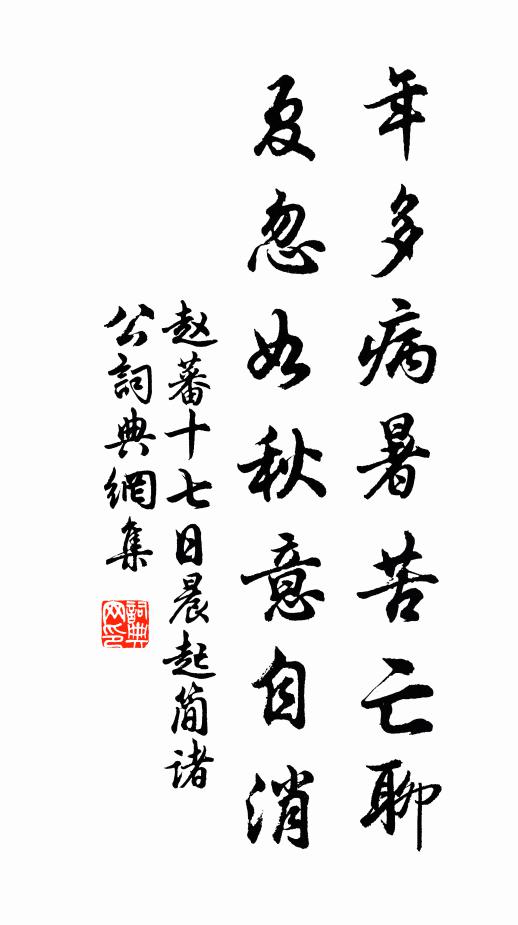 年多病暑苦亡聊
夏忽如秋意自消
赵蕃十七日晨起简诸
公詞典網集
詞典網印